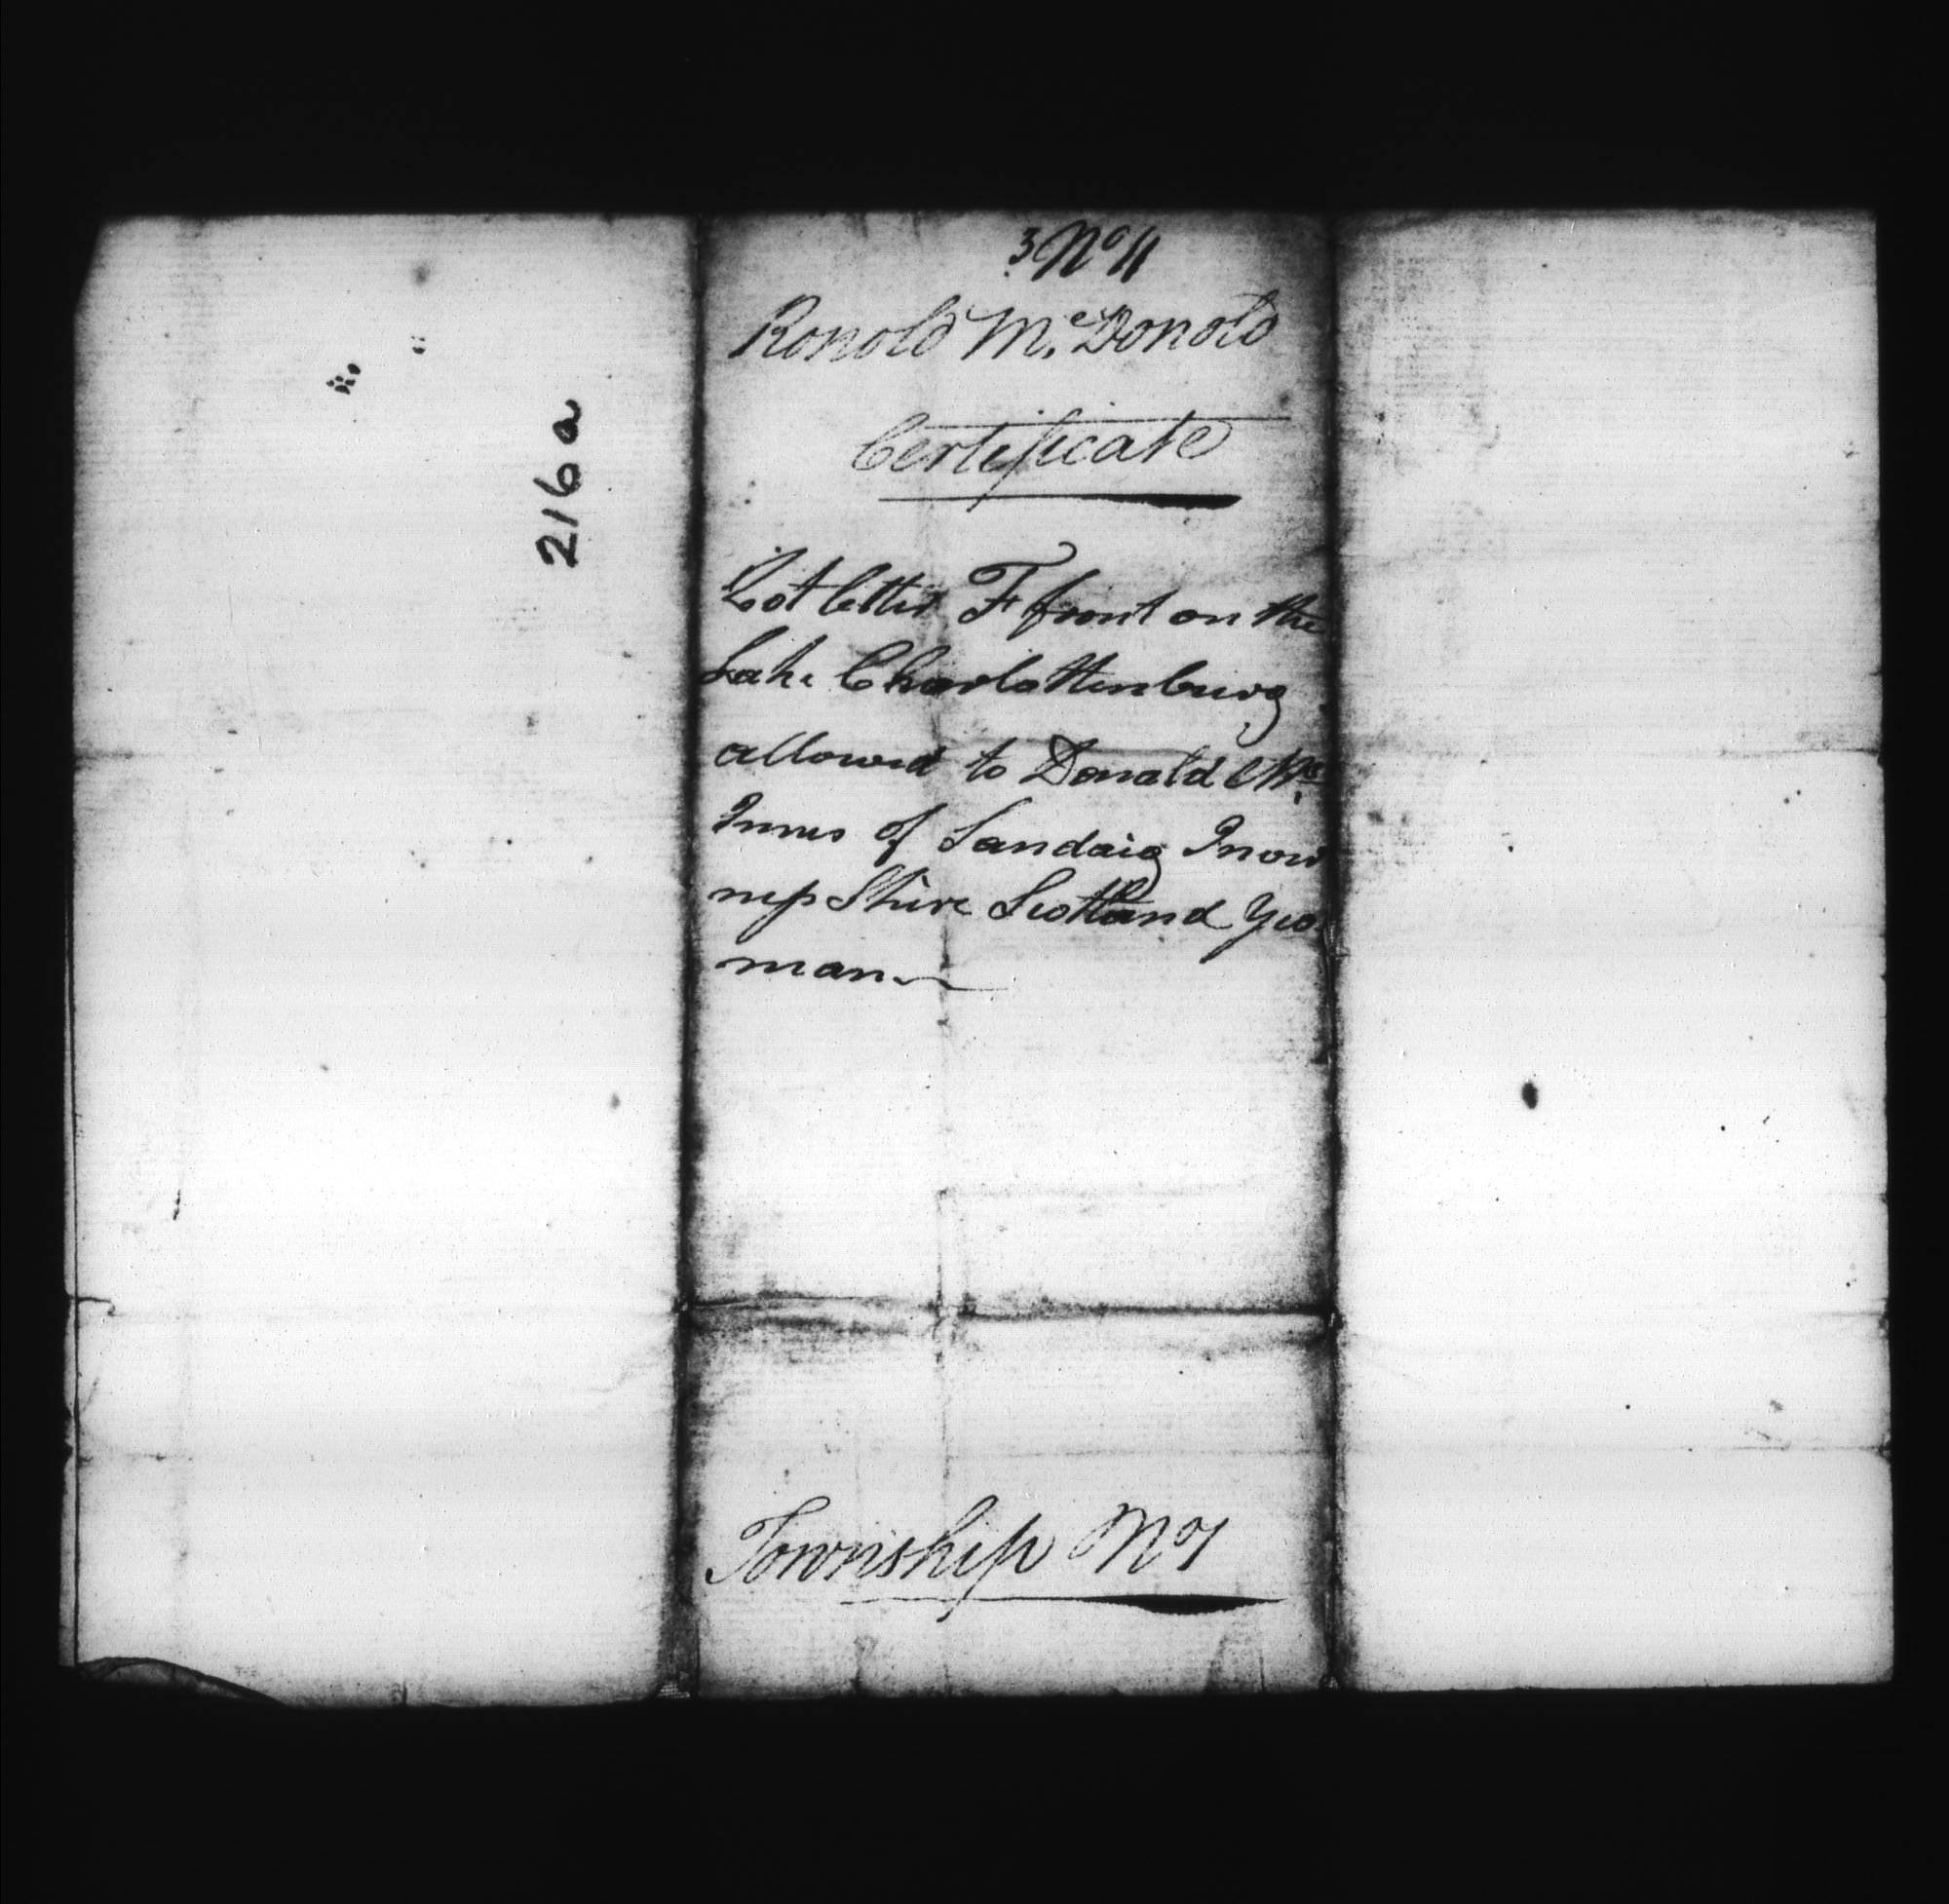 216a
3 No 11
Ronold Mc Donold
Certificate
Lot letter F front on the
Lake Charlottenburg
allowed to Donald Mc
Innis of Sandaig Inver
neps Shire Scotland Yeo
man
Township No 1